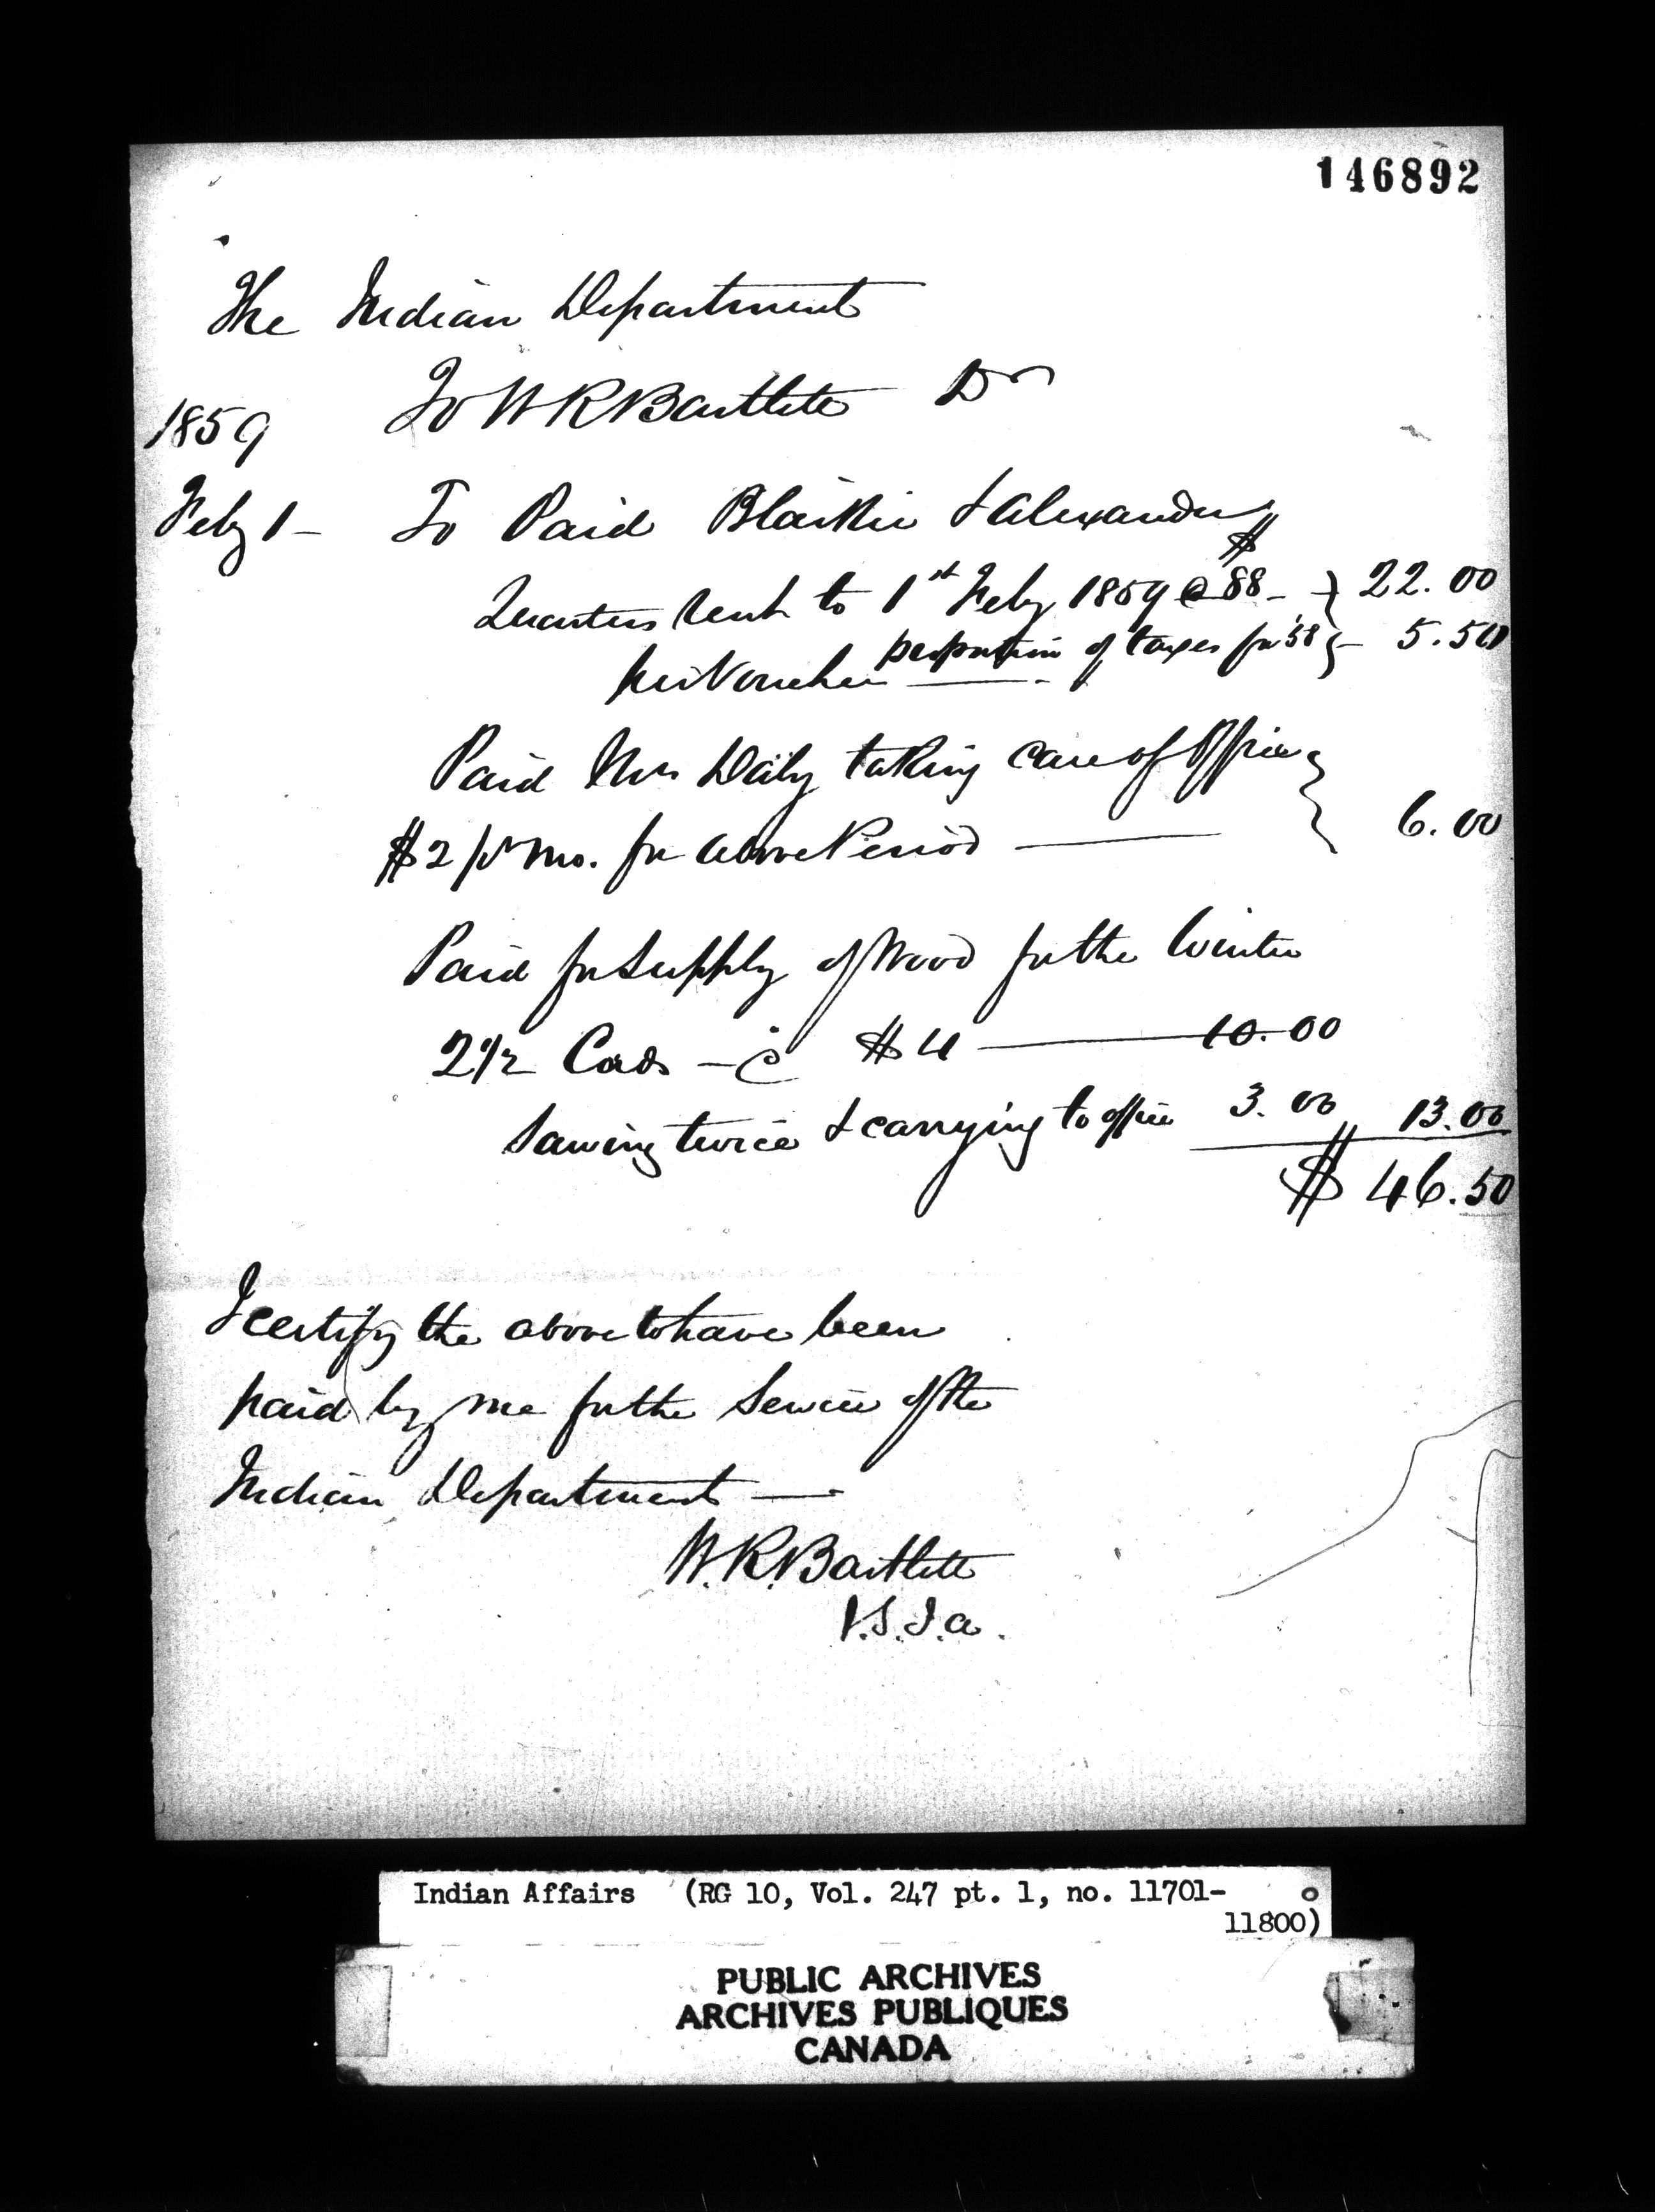 146892
The Indian Department
To W R Bartlett Dr
1859
Feby 1 - To Paid Blaikie & Alexander
Quarters rent to 1st Feby 1859 @ $88 - } 22.00
proportion of taxes for '58 } - 5.50
per Voucher
Paid Mrs Daily taking care of Office }
$2 pr mo. for above Period — } 6.00
Paid for supply of Wood for the Winter
2 1/2 Cords - @ $4 — 10.00
Sawing twice & carrying to office 3.00 13.00
$ 46.50
I certify the above to have been
paid by me for the Service of the
Indian Department —
W.R. Bartlett
V.S.I.a.
Indian Affairs (RG 10, Vol. 247 pt. 1, no. 11701-
11800)
PUBLIC ARCHIVES
ARCHIVES PUBLIQUES
CANADA